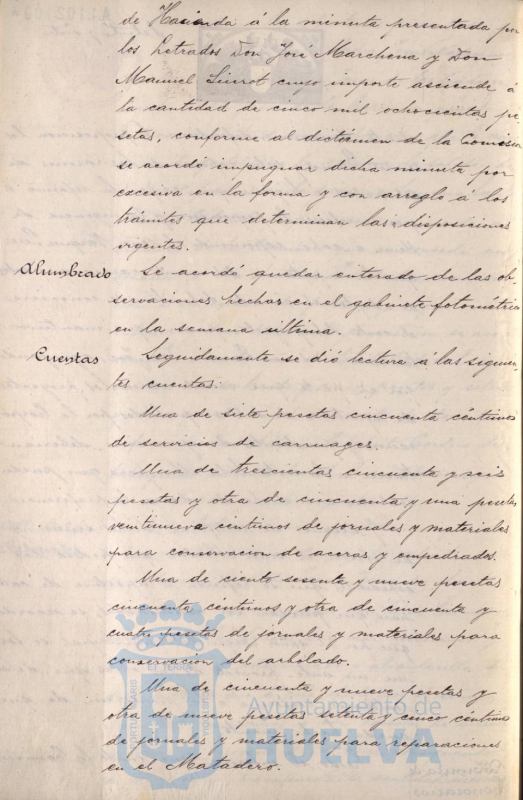 de Hacienda á la minuta presentada por
los Letrados Don José Marchena y Don
Manuel Siurot cuyo importe asciende á
la cantidad de cinco mil ochocientas pe-
setas, conforme al dictámen de la Comision
se acordó impugnar dicha minuta por
excesiva en la forma y con arreglo á los
trámites que determinan las disposiciones
vigentes.
Alumbrado
Se acordó quedar enterado de las ob-
servaciones hechas en el gabinete fotométrico
en la semana última.
Cuentas
Seguidamente se dió lectura á las siguien-
tes cuentas:
Una de siete pesetas cincuenta céntimos
de servicios de carruages.
Una de trescientas cincuenta y seis
pesetas y otra de cincuenta y una pesetas
veintinueve céntimos de jornales y materiales
para conservacion de aceras y empedrados.
Una de ciento sesenta y nueve pesetas
cincuenta céntimos y otra de cincuenta y
cuatro pesetas de jornales y materiales para
conservacion del arbolado.
Una de cincuenta y nueve pesetas y
otra de nueve pesetas setenta y cinco céntimos
de jornales y materiales para reparaciones
en el Matadero.
Ayuntamiento de
HUELVA